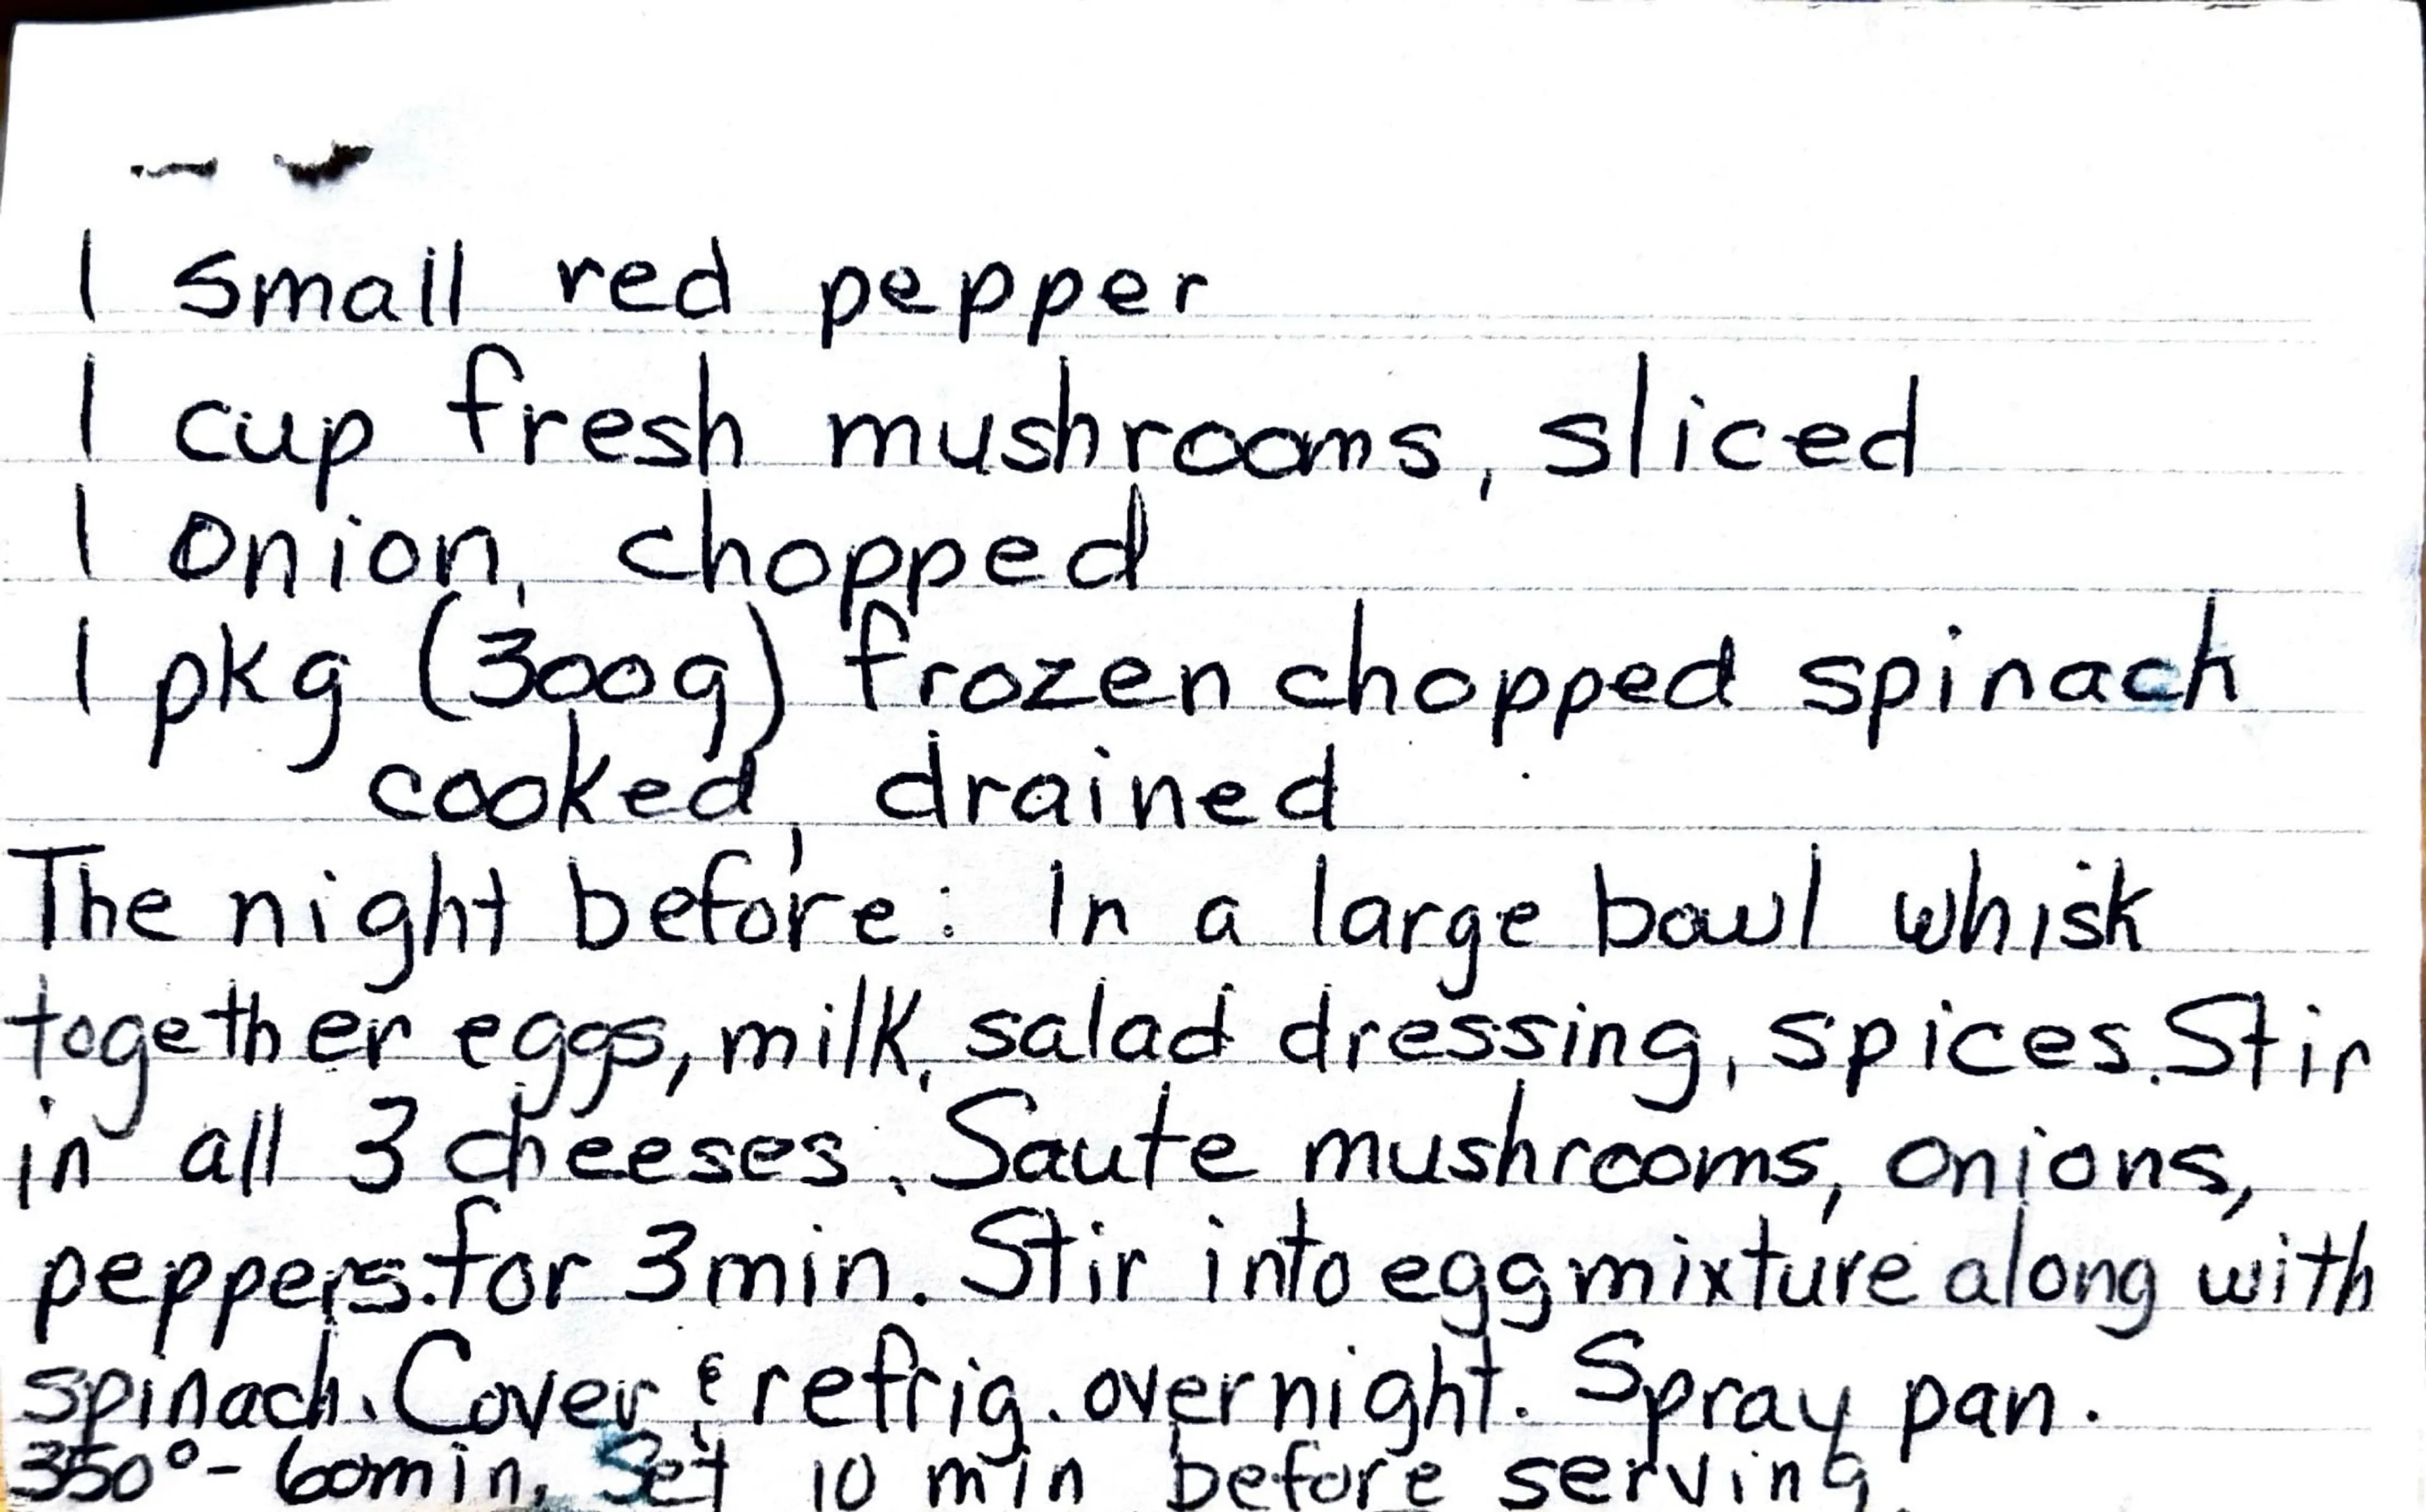 1 small red pepper
1 cup fresh mushrooms, sliced
1 onion, chopped
1 pkg (300g) frozen chopped spinach
cooked, drained
The night before: In a large bowl whisk
together eggs, milk, salad dressing, spices. Stir
in all 3 cheeses. Saute mushrooms, onions,
peppers. for 3 min. Stir into egg mixture along with
spinach. Cover & refrig. overnight. Spray pan.
350° - 60min. Set 10 min before serving.